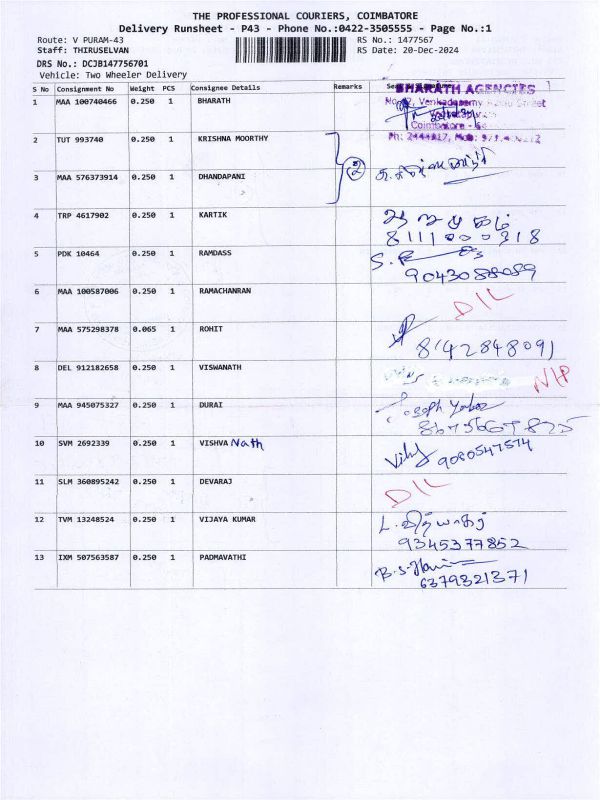 THE PROFESSIONAL COURIERS, COIMBATORE
Delivery Runsheet - P43 - Phone No.:0422-3505555 - Page No.:1
Route: V PURAM-43 RS No.: 1477567
Staff: THIRUSELVAN RS Date: 20-Dec-2024
DRS No.: DCJB147756701
Vehicle: Two Wheeler Delivery
S No Consignment No Weight PCS Consignee Details Remarks
BHARATH AGENCIES
1 MAA 100740466 0.250 1 BHARATH
Street
Coimbatore
2 TUT 993740 0.250 1 KRISHNA MOORTHY
Ph:
2
3 MAA 576373914 0.250 1 DHANDAPANI
4 TRP 4617902 0.250 1 KARTIK
8111000318
5 PDK 10464 0.250 1 RAMDASS
9043088089
6 MAA 100587006 0.250 1 RAMACHANRAN
D/L
7 MAA 575298378 0.065 1 ROHIT
8142848091
8 DEL 912182658 0.250 1 VISWANATH
N/P
9 MAA 945075327 0.250 1 DURAI Joseph
10 SVM 2692339 0.250 1 VISHVA Nath
9080547574
11 SLM 360895242 0.250 1 DEVARAJ D/L
12 TVM 13248524 0.250 1 VIJAYA KUMAR
9345377852
13 IXM 507563587 0.250 1 PADMAVATHI
6379321371